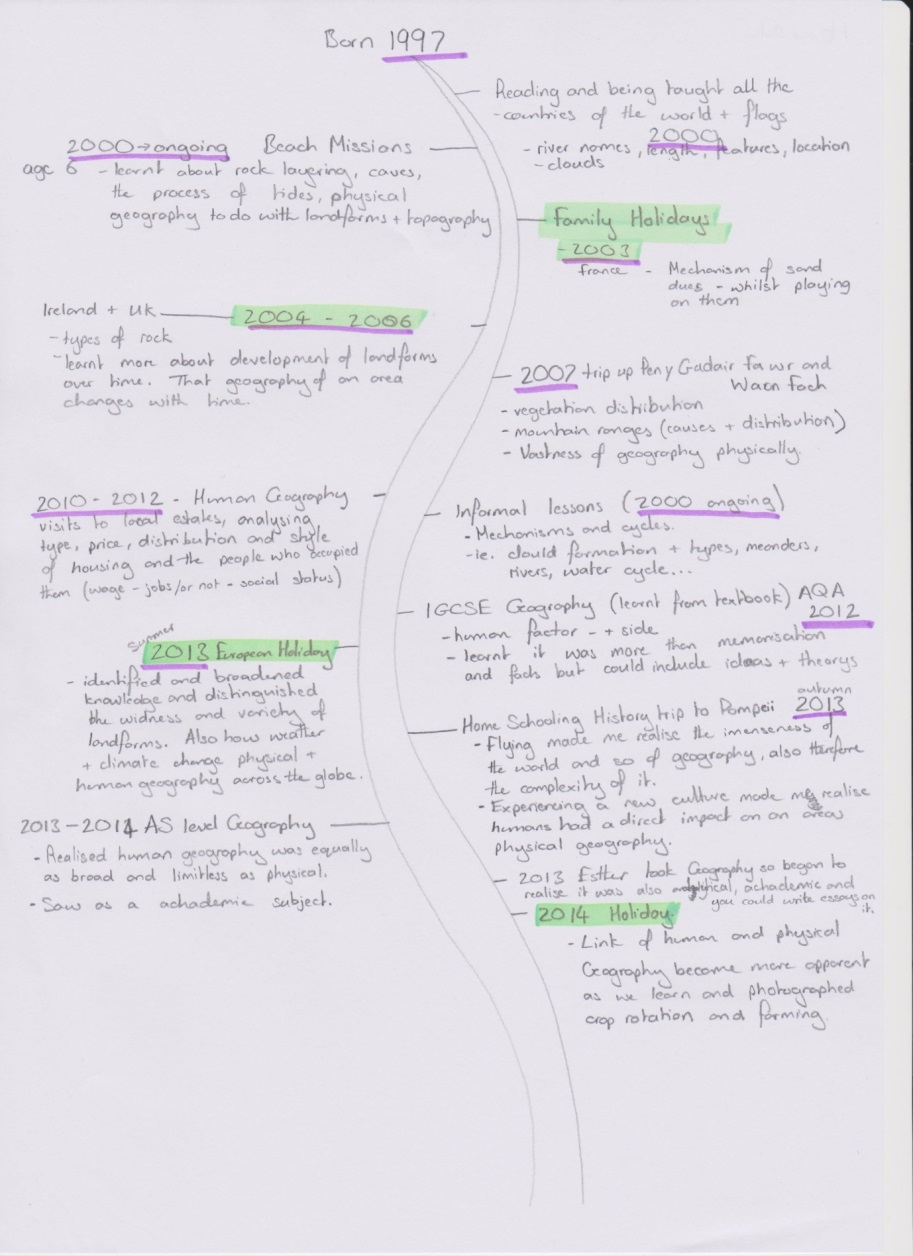 Born 1997
Reading and being taught all the
-countries of the world + flags
2000
- river names, length, features, location
- clouds
2000→ongoing Beach Missions
age 6 - learnt about rock layering, caves,
the process of tides, physical
geography to do with landforms + topography
Family Holidays
- 2003
france - Mechanism of sand
dues - whilst playing
on them
Ireland + UK
2004 - 2006
- types of rock
- learnt more about development of landforms
over time. That geography of an area
changes with time.
2007 trip up Pen y Gadair fawr and
Waon fach
- vegetation distribution
- mountain ranges (causes + distribution)
- Vastness of geography physically.
2010 - 2012 - Human Geography
visits to local estates, analysing
type, price, distribution and style
of housing and the people who occupied
them (wage - jobs/or not - social status)
Informal lessons (2000 ongoing)
- Mechanisms and cycles.
- ie. cloud formation + types, meanders,
rivers, water cycle...
IGCSE Geography (learnt from textbook) AQA
2012
- human factor - + side
- learnt it was more than memorisation
and facts but could include ideas + theorys
summer
2013 European Holiday
- identified and broadened
knowledge and distinguished
the widness and variety of
landforms. Also how weather
+ climate change physical +
human geography across the globe.
autumn
Home Schooling History trip to Pompeii 2013
- Flying made me realise the imenseness of
the world and so of geography, also therefore
the complexity of it.
- Experiencing a new culture made me realise
humans had a direct impact on an areas
physical geography.
2013-2014 AS level Geography
- Realised human geography was equally
as broad and limitless as physical.
- Saw as a achademic subject.
- 2013 Esther took Geography so began to
realise it was also analytical, achademic and
you could write essays on
it.
2014 Holiday.
- Link of human and physical
Geography become more apparent
as we learn and photographed
crop rotation and farming.